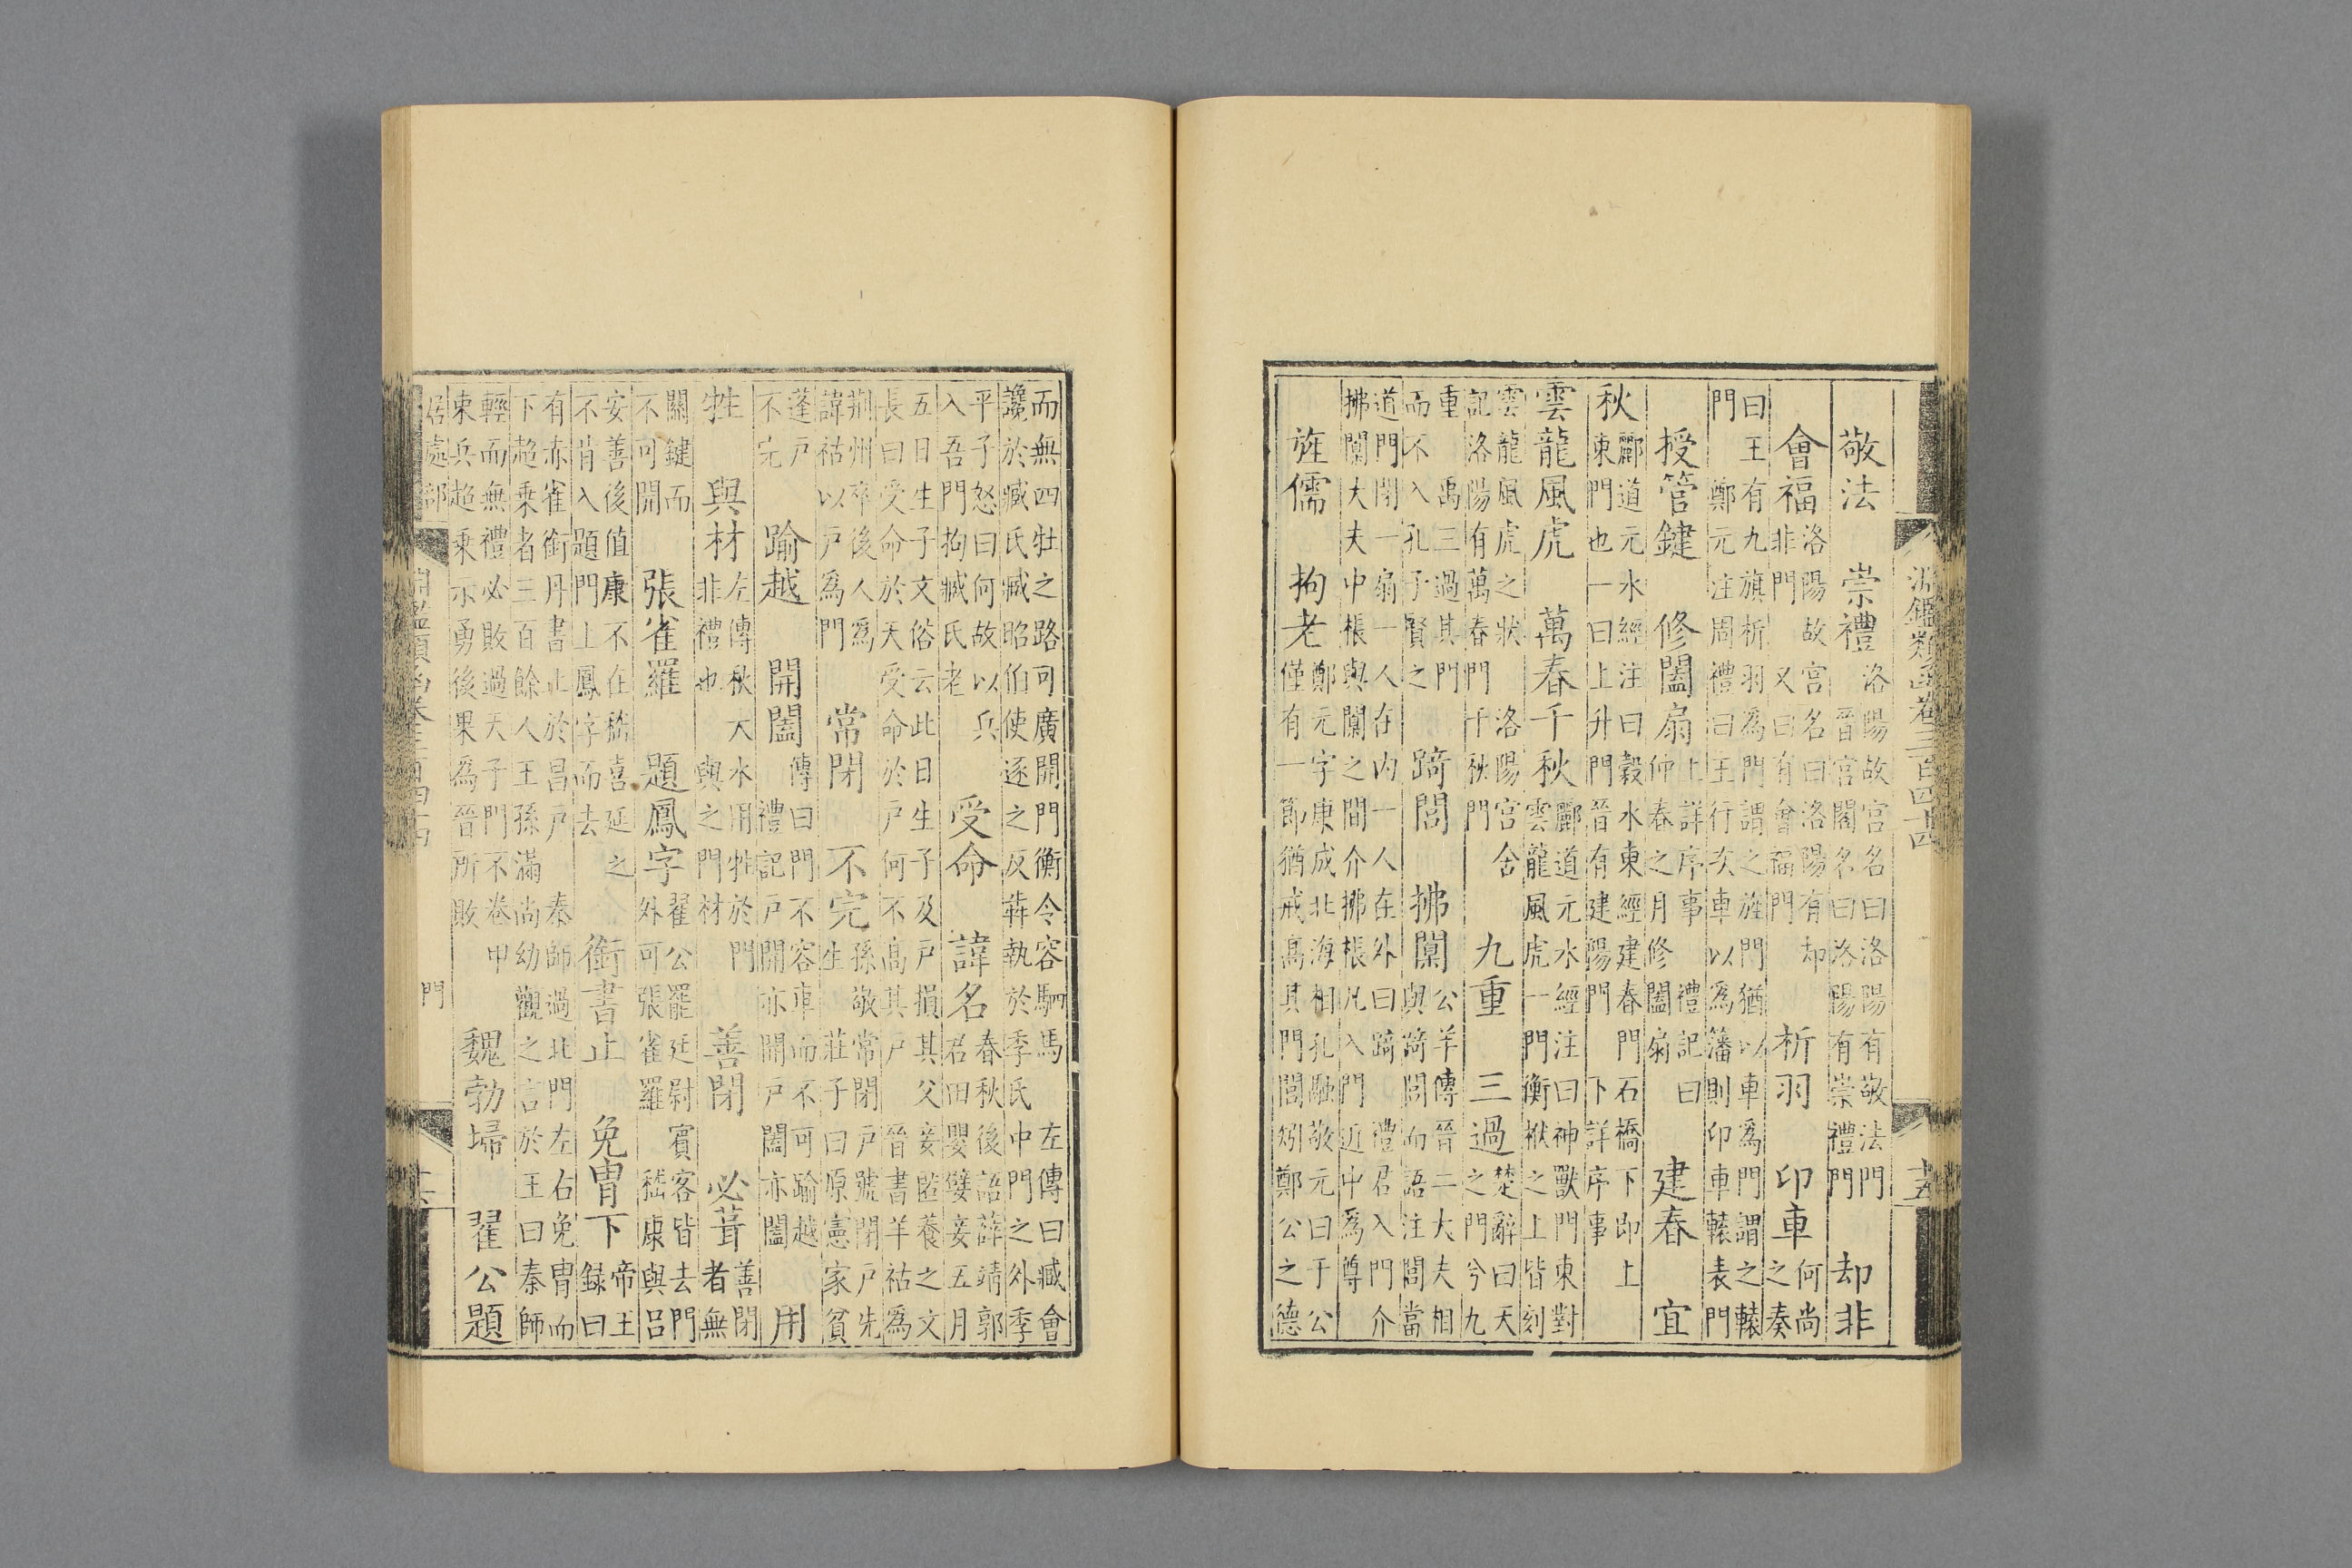 淵鑑類函卷三百四十四 十五
敬法 崇禮
洛陽故宮名曰洛陽有敬法門
晉宮閣名曰洛陽有崇禮門
却非
會福
洛陽故宮名曰洛陽有却
非門 又曰有會福門
析羽 印車
何尚
之奏
曰王有九旗析羽為門謂之旌門猶以車為門謂之轅
門 鄭元注周禮曰王行次車以為藩則印車轅表門
授管鍵 修闔扇
上詳序事 禮記曰
仲春之月修闔扇
建春 宜
秋
酈道元水經注曰穀水東經建春門石橋下即上
東門也一曰上升門晉有建陽門 下詳序事
雲龍風虎 萬春千秋
酈道元水經注曰神獸門東對
雲龍風虎一門衡栿之上皆刻
雲龍風虎之狀 洛陽宮舍
記洛陽有萬春門千秋門
九重 三過
楚辭曰天
之門兮九
重 禹三過其門
而不入孔子賢之
踦閭 拂闑
公羊傳晉二大夫相
與踦閭而語注閭當
道門閉一扇一人在內一人在外曰踦 禮君入門介
拂闑大夫中棖與闑之間介拂棖凡入門近中為尊
旌儒 拘老
鄭元字康成北海相孔融敬元曰于公
僅有一節猶戒高其門閭矧鄭公之德
而無四牡之路可廣開門衡令容駟馬 左傳曰臧會
讒於臧氏臧昭伯使逐之反奔執於季氏中門之外季
平子怒曰何故以兵
入吾門拘臧氏老
受命 諱名
春秋後語薛靖郭
君田嬰嬖妾五月
五日生子文俗云此日生子及戶損其父妾匿養之文
長曰受命於天受命於戶何不高其戶 晉書羊祜為
荊州卒後人為
諱祜以戶為門
常閉 不完
孫敬常閉戶號閉戶先
生 莊子曰原憲家貧
蓬戶
不完
踰越 開闔
傳曰門不容車而不可踰越
禮記戶開亦開戶闔亦闔
用
牲 與材
左傳秋大水用牲於門
非禮也 與之門材
善閉 必葺
善閉
者無
關鍵而
不可開
張雀羅 題鳳字
翟公罷廷尉賓客皆去門
外可張雀羅 嵇康與呂
安善後值康不在嵇喜延之
不肯入題門上鳳字而去
銜書止 免冑下
帝王
錄曰
有赤雀銜丹書止於昌戶 秦師過北門左右免冑而
下超乘者三百餘人王孫滿尚幼觀之言於王曰秦師
輕而無禮必敗過天子門不卷甲
束兵超乘示勇後果為晉所敗
魏勃埽 翟公題
居處部 淵鑑類函卷三百四十四 門 十六